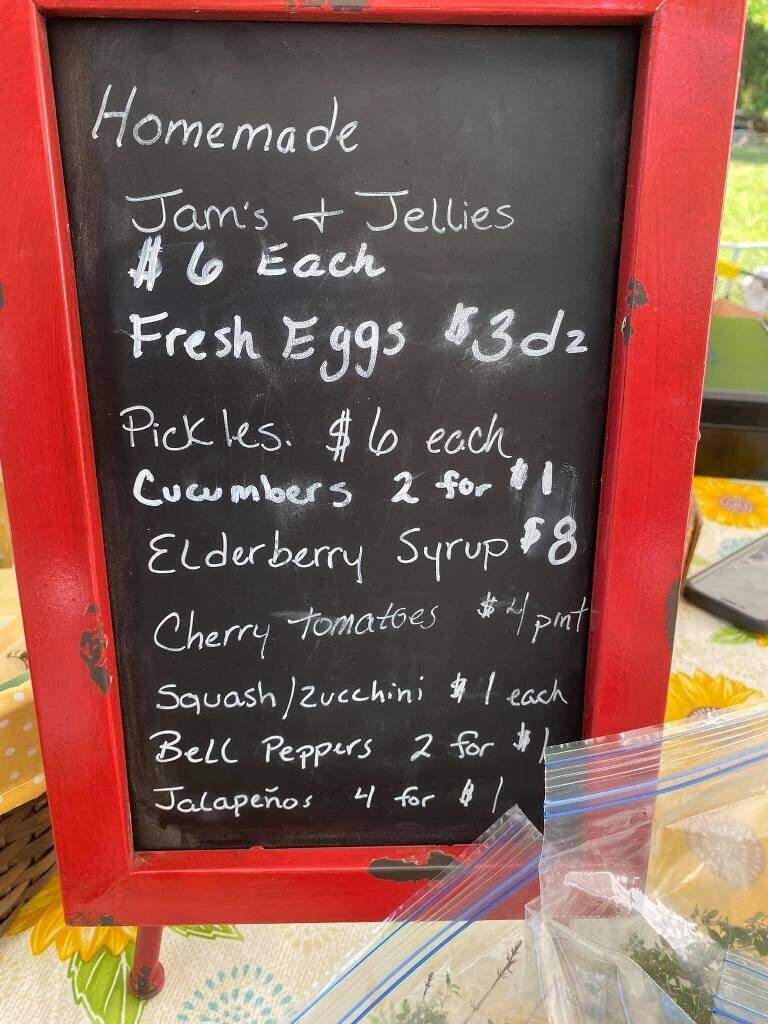 Homemade
Jam's + Jellies
$6 Each
Fresh Eggs $3 dz
Pickles. $6 each
Cucumbers 2 for $1
Elderberry Syrup $8
Cherry tomatoes $4/pint
Squash/zucchini $1 each
Bell Peppers 2 for $1
Jalapeños 4 for $1